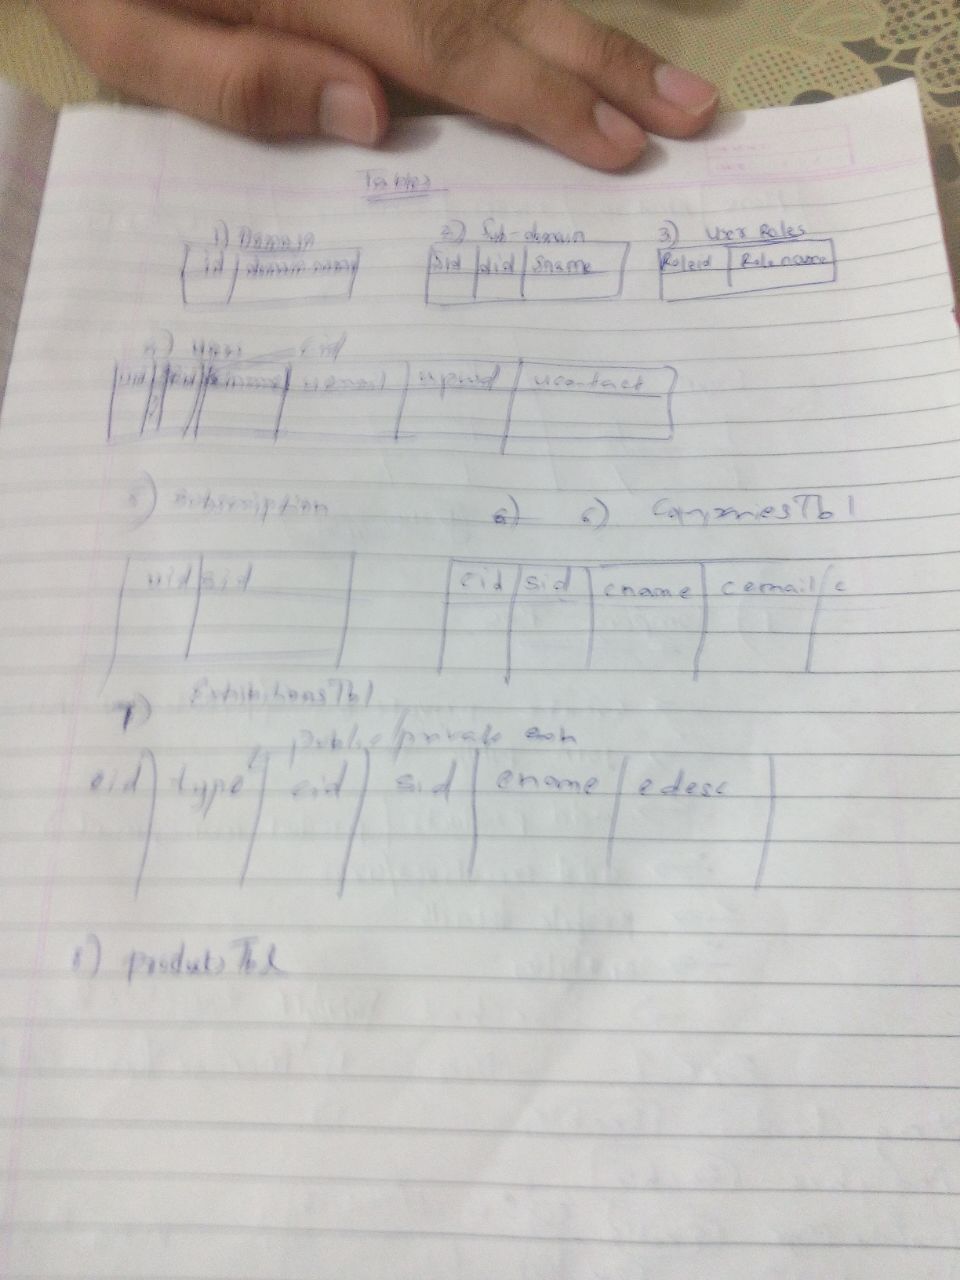 Tables
1) Domain 2) Sub-domain 3) User Roles
id domain name sid did Sname Roleid Role name
4) User
uid uemail upwd ucontact
5) Subscription 6) 6) CompaniesTbl
uid sid cid sid cname cemail c
7) ExhibitionsTbl
public/private exh
eid type cid sid ename edesc
8) productsTbl